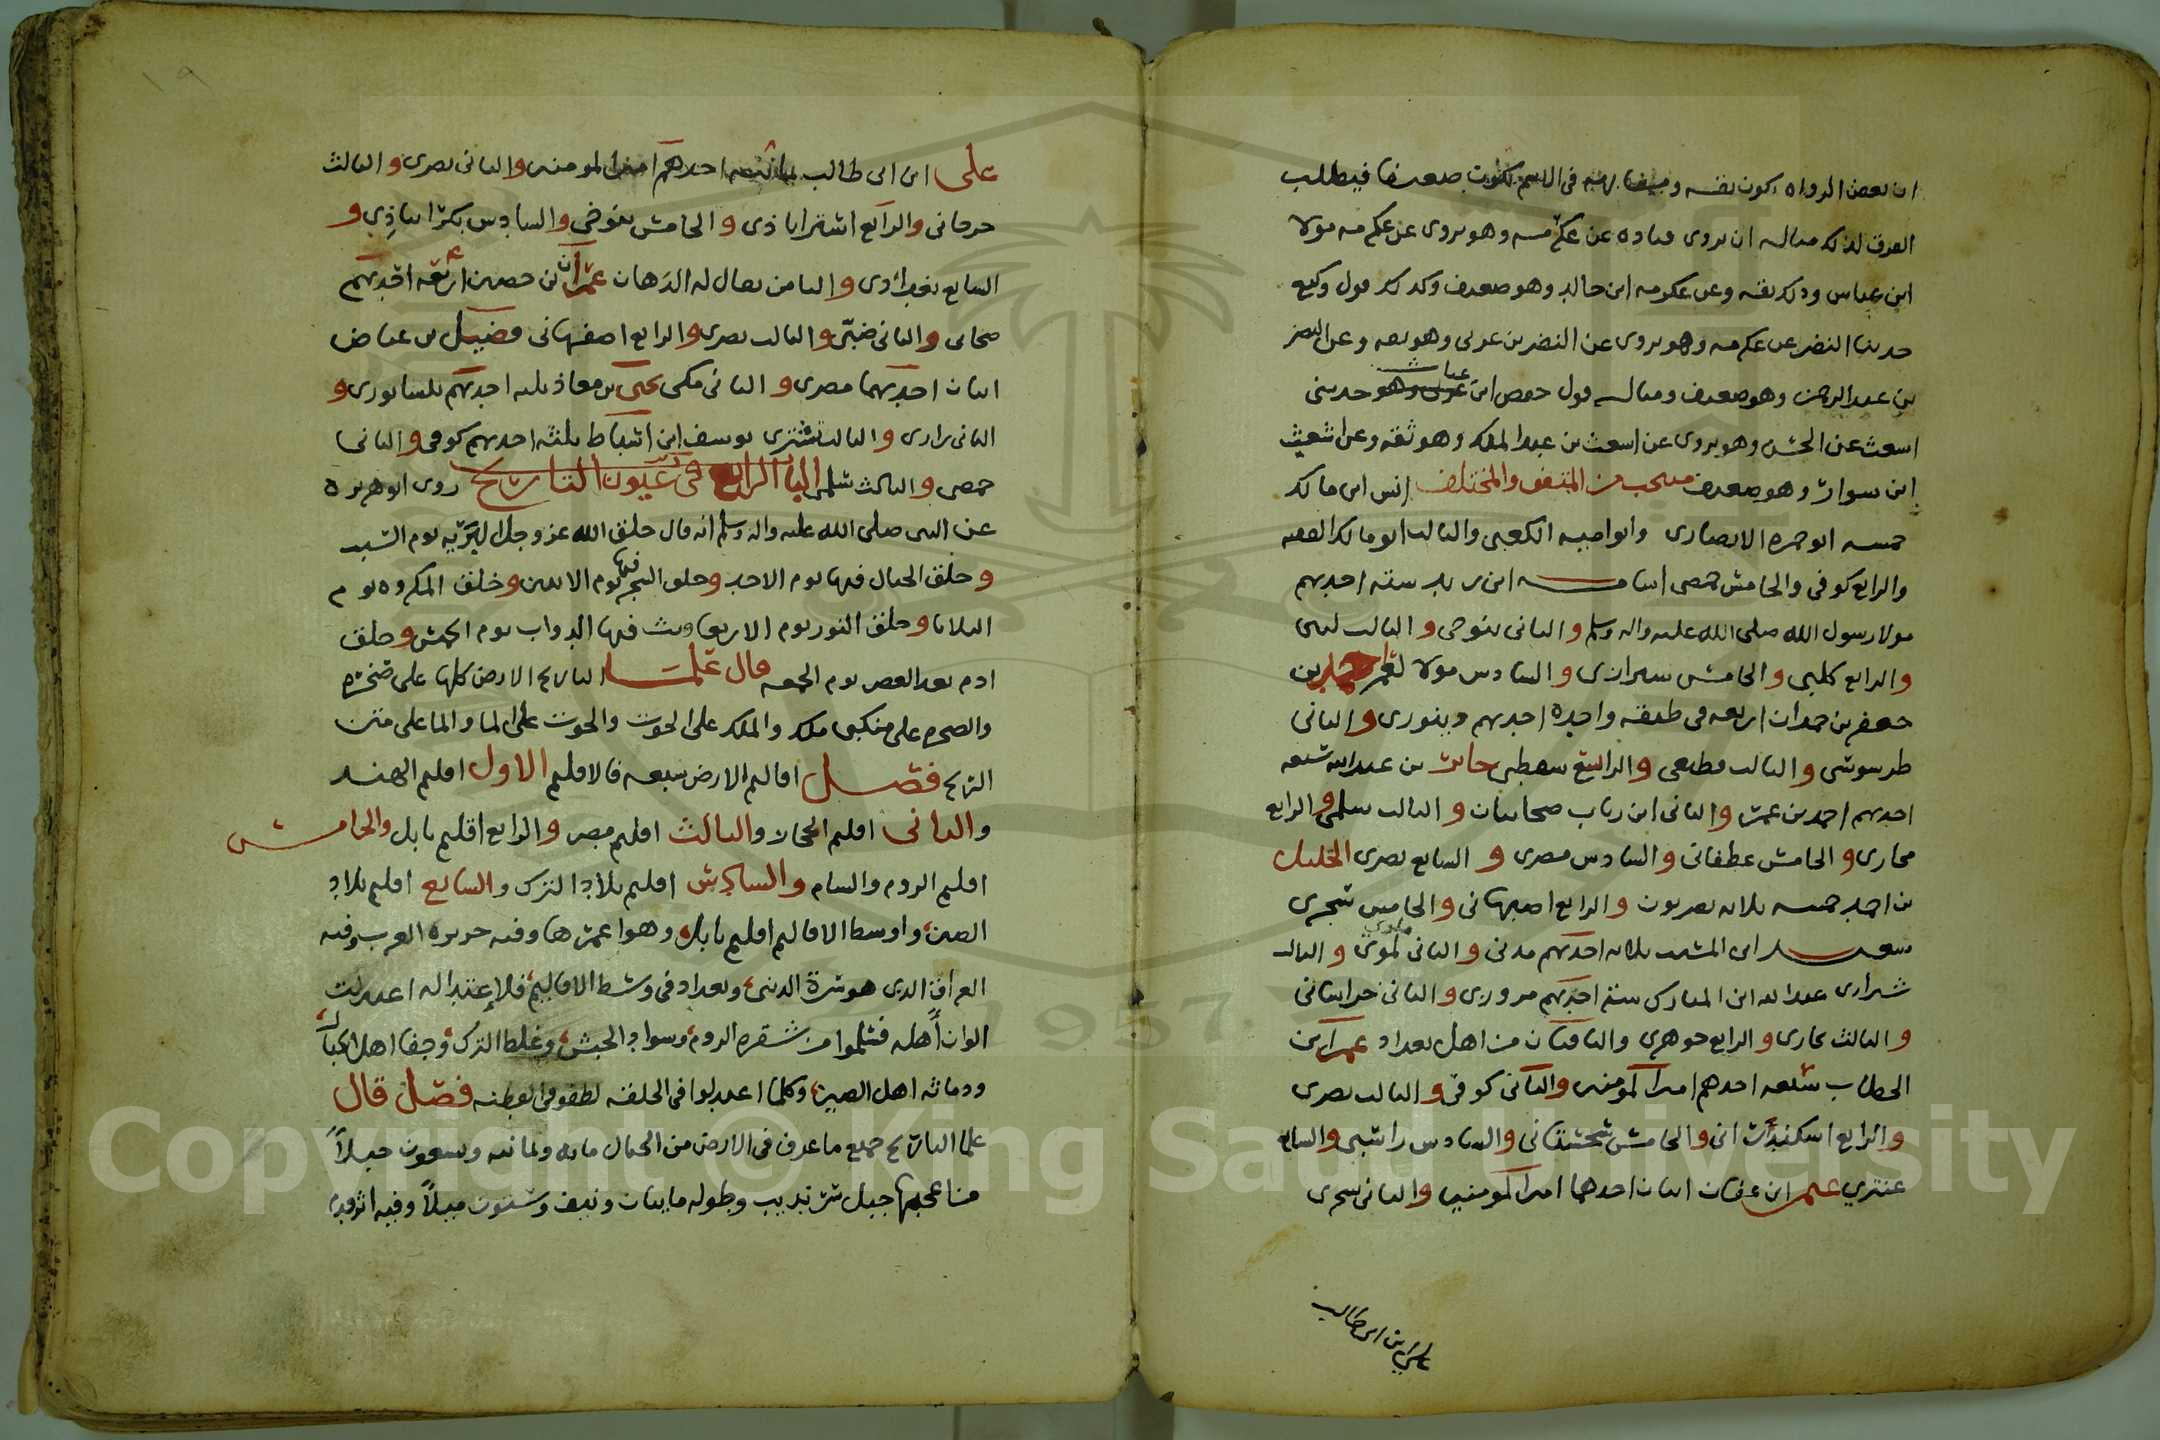 ان بعض الرواه يكون ثقه في الاسم يكون ضعيفا فيطلب
الفرق لذلك مثاله ان يروى قتاده عن عكرمه وهو يروى عن عكرمه مولا
ابن عباس وذلك ثقه وعن عكرمه ابن خالد وهو ضعيف وكذلك قول وكيع
حدثنا النضر عن عكرمه وهو يروى عن النضر بن عربى وهو ثقه وعن النضر
بن عبد الرحمن وهو ضعيف ومثاله قول حفص ابن غياث حدثنى
اشعث عن الحسن وهو يروى عن اشعث بن عبد الملك وهو ثقه وعن اشعث
ابن سوار وهو ضعيف منتخب من المتفق والمختلف انس ابن مالك
خمسه ابو حمزه الانصارى وابو اميه الكعبى والثالث ابو مالك الفقيه
والرابع كوفى والخامس حمصى اسامه ابن زيد سته احدهم
مولا رسول الله صلى الله عليه واله وسلم والثانى تنوخى والثالث ليثى
والرابع كلبى والخامس شيرازى والسادس مولا لعمر احمد بن
جعفر بن حمدان اربعه فى طبقه واحده احدهم دينورى والثانى
طرسوسى والثالث قطيعى والرابع سقطى جابر بن عبد الله سبعه
احدهم احمد بن عمر والثانى ابن رياب صحابيان والثالث سلمى والرابع
محاربى والخامس غطفانى والسادس مصرى والسابع بصرى الخليل
بن احمد خمسه ثلاثه بصريون والرابع اصبهانى والخامس سجزى
سعيد ابن المسيب ثلاثه احدهم مدنى والثانى والثالث
شيرازى عبد الله ابن المبارك سته احدهم مروزى والثانى خراسانى
والثالث بخارى والرابع جوهرى والباقيان من اهل بغداد عمر بن
الخطاب سبعه احدهم امير المومنين والثانى كوفى والثالث بصرى
والرابع اسكندرانى والخامس سجستانى والسادس راسبى والسابع
عنبري عثمن ابن عفان اثنان احدهما امير المومنين والثانى سجزى
على ابن ابى طالب
على ابن ابى طالب ثمانيه احدهم امير المومنين والثانى بصرى والثالث
جرجانى والرابع استراباذى والخامس تنوخى والسادس بكراباذى و
السابع بغدادى والثامن يقال له الدهان عمران بن حصين اربعه احدهم
صحابى والثانى ضبى والثالث بصرى والرابع اصفهانى فضيل بن عياض
اثنان احدهما مصرى والثانى مكى يحيى بن معاذ ثلثه احدهم نيسابورى و
الثانى رازى والثالث تسترى يوسف ابن اسباط ثلثه احدهم كوفى والثانى
حمصى والثالث سلمى الباب الرابع فى عيون التاريخ روى ابو هريره
عن النبى صلى الله عليه واله وسلم انه قال خلق الله عز وجل التربه يوم السبت
وخلق الجبال فيها يوم الاحد وخلق الشجر فيها يوم الاثنين وخلق المكروه يوم
الثلاثا وخلق النور يوم الاربعا وبث فيها الدواب يوم الخميس وخلق
ادم بعد العصر يوم الجمعه قال علما التاريخ الارض كلها على صخره
والصخره على منكبى ملك والملك على الحوت والحوت على الما والما على متن
الريح فصل اقاليم الارض سبعه فالاقليم الاول اقليم الهند
والثانى اقليم الحجاز والثالث اقليم مصر والرابع اقليم بابل والخامس
اقليم الروم والشام والسادس اقليم بلاد الترك والسابع اقليم بلاد
الصين واوسط الاقاليم اقليم بابل وهو اعمرها وفيه جزيره العرب وفيه
العراق الذى هو سرة الدنيا وبغداد فى وسط الاقاليم فلاعتداله اعتدلت
الوان أهله فسلموا من شقره الروم وسواد الحبش وغلظ الترك وجفا اهل الجبال
ودمامه اهل الصين وكلما اعتدلوا فى الخلقه لطفو فى الفطنه فصل قال
علما التاريخ جميع ما عرف فى الارض من الجبال مايه وثمانيه وتسعون جبلاً
من اعجبها جبل سرنديب وطوله مايتان ونيف وستون ميلاً وفيه اثر قدم